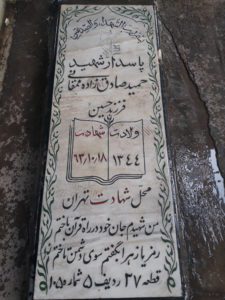 پاسدار شهید
حمید صادق زاده ممقانی
فرزند حسین
ولادت شهادت
۱۳۴۴ ۶۳/۱۰/۱۸
محل شهادت تهران
من شهیدم جان خود در راه قرآن باختم
رمز یا زهرا بگفتم سوی دشمن تاختم
قطعه ۲۷ ردیف ۵ شماره ۱۰۵